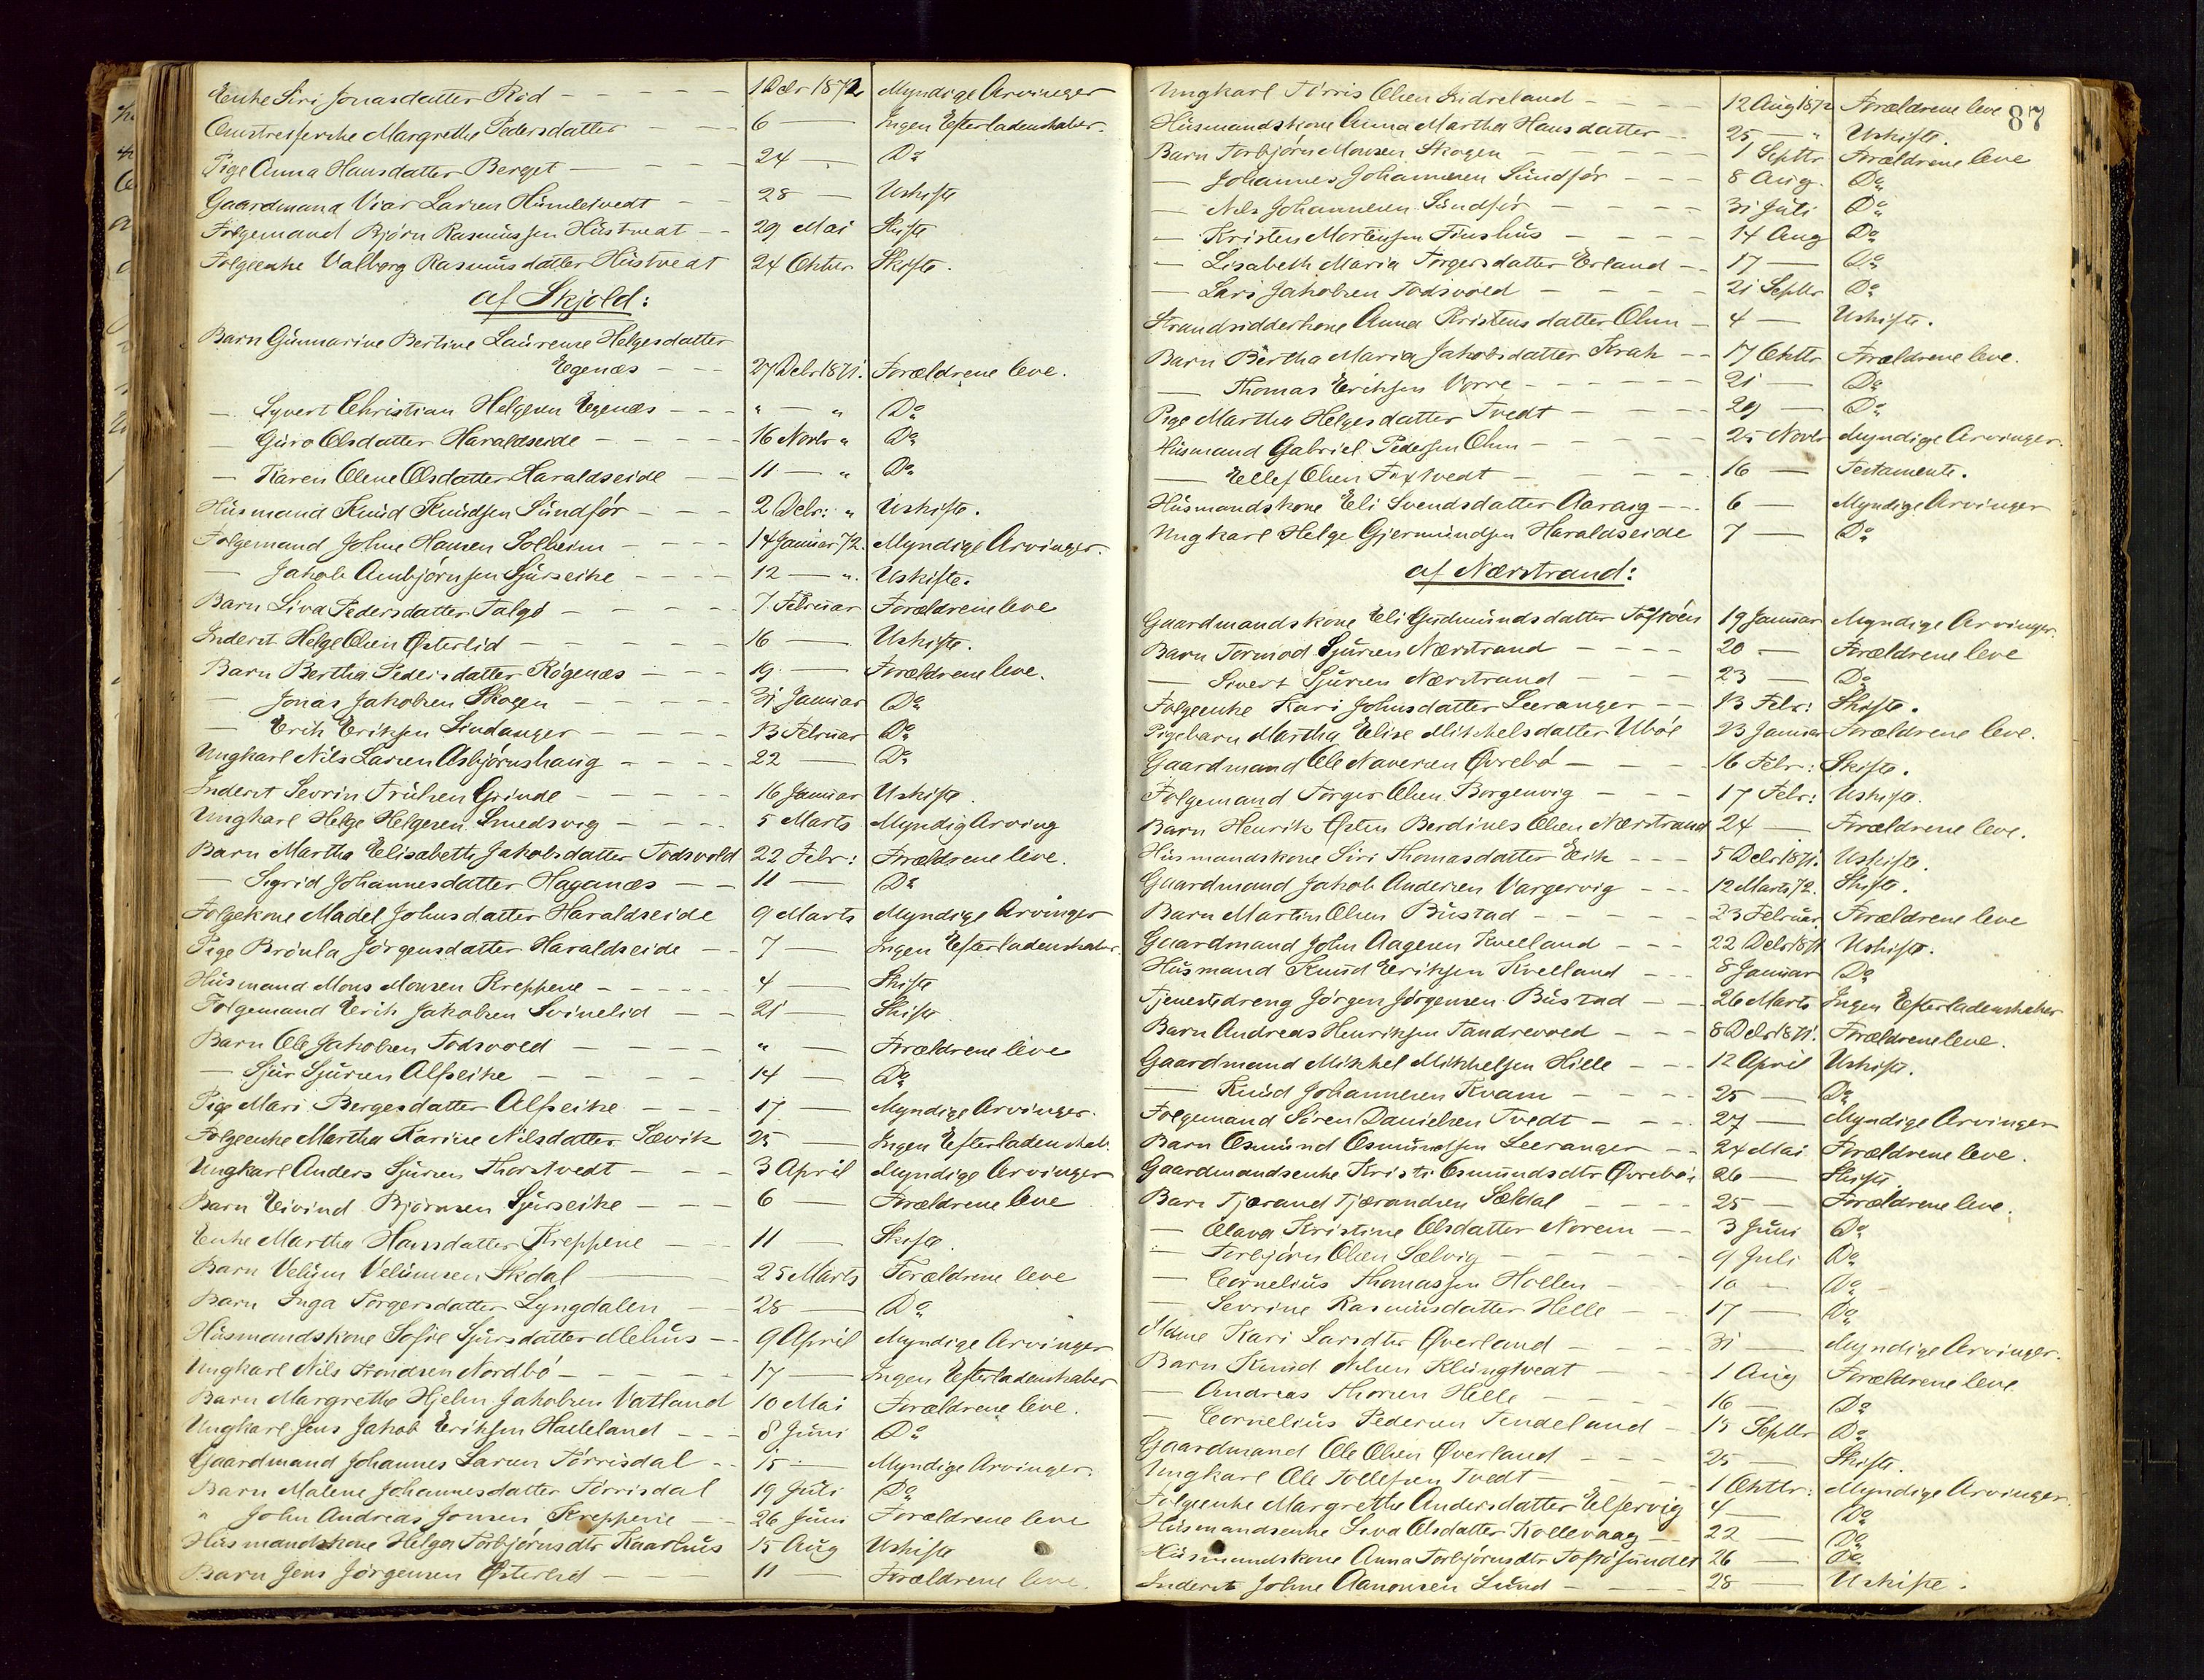 Enke Siri Jonasdatter Röd - - - - - 1 Decbr 1872 Myndige Arvinger
Margrethe Pedersdatter - - 6 — Ingen Efterladenskaber.
Pige Anna Hansdatter Berget - - - 24 — Do
Gaardmand Viar Larsen Humletvedt - - 28 — Uskifte
Folgemand Björn Rasmussen Hustvedt - - 29 Mai Skifte
Folgeenke Valborg Rasmusdatter Hustvedt 24 Oktbr Skifte.
af Skjold:
Barn Gunnarine Bertine Laurense Helgesdatter
Egenæs - - - 27 Debr 1871. Forældrene leve.
— Syvert Christian Helgesen Egenæs - - - " — " Do
— Guro Olsdatter Haraldseide - - - - - 16 Novbr " Do
— Karen Oline Olsdatter Haraldseide - - 11 — " Do
Husmand Knud Knudsen Sundför - - - 2 Debr: " Uskifte.
Folgemand Johne Hansen Solheim - - - - 14 Januar 72. Myndige Arvinger.
— Jakob Ambjörnsen Sjurseike - - - - 12 — ". Uskifte.
Barn Siva Pedersdatter Talgö - - - - - 7 Februar Forældrene leve
Inderst Helge Olsen Østerlid - - - - - 16 — Uskifte.
Barn Bertha Pedersdatter Rögenæs - - - 19 — Forældrene leve.
— Jonas Jakobsen Skogen - - - - - 31 Januar Do
— Erik Eriksen Lindanger - - - - - 13 Februar Do
Ungkarl Nils Larsen Asbjörnshaug - - - - 22 — Do
Inderst Sevrin Grinde - - - - - 16 Januar Uskifte.
Ungkarl Helge Helgesen Smedsvig - - - - 5 Marts Myndig Arving
Barn Martha Elisabeth Jakobsdatter Todsvold 22 Febr: Forældrene leve.
— Sigrid Johannesdatter Haganæs - - 11 — Do
Folgekone Madel Johnsdatter Haraldseide 9 Marts Myndige Arvinger
Pige Brönla Jörgensdatter Haraldseide - - 7 — Ingen Efterladenskaber.
Husmand Mons Monsen Kreppene - - - - - 4 — Skifte
Folgemand Erik Jakobsen Svinelid - - 21 — Skifte
Barn Ole Jakobsen Todsvold - - - - - " — Forældrene leve
— Sjur Sjursen Alfseike - - - - - 14 — Do
Pige Mari Bergesdatter Alfseike - - - 17 — Myndige Arvinger.
Folgeenke Martha Karine Nilsdatter Sævik 25 — Ingen Efterladenskab.
Ungkarl Anders Sjursen Thorstvedt - - - 3 April Myndige Arvinger
Barn Eivind Björnsen Sjurseike - - - 6 — Forældrene leve
Enke Martha Hansdatter Kreppene - - 11 — Skifte.
Barn Velum Velumsen Skdal — 25 Marts Forældrene leve
Barn Inga Torgersdatter Lyngdalen - - 28 — Do
Husmandskone Sofie Sjursdatter Mehus - - 9 April Myndige Arvinger
Ungkarl Nils Trondsen Nordbö - - - - - 17 — Ingen Efterladenskaber
Barn Margrethe Hjelm Jakobsen Vatland 10 Mai Forældrene leve.
Ungkarl Jens Jakob Eriksen Halleland - - - 8 Juni Do
Gaardmand Johannes Larsen Törrisdal - - 15 — Myndige Arvinger.
Barn Malene Johannesdatter Törrisdal 19 Juli Do
" John Andreas Jonsen Kreppene - - 26 Juni Forældrene leve
Husmandskone Helga Torbjörnsdtr Kaarhus 15 Aug Uskifte
Barn Jens Jörgensen Østerlid - - - - 11 — Forældrene leve.
87
Ungkarl Törris Olsen Indreland - - - - 12 Aug 1872 Forældrene leve
Husmandskone Anna Martha Hansdatter - - 25 — " Uskifte.
Barn Torbjörn Monsen Skogen - - - - 1 Septbr Forældrene leve
— Johannes Johannesen Sundför - - - 8 Aug. Do
— Nils Johannesen Sundför - - - - 31 Juli Do
— Kristen Mortensen Finshus - - - - 14 Aug Do
— Lisabeth Maria Torgersdatter Erland - - 17 — Do
— Lars Jakobsen Todsvold - - - - 21 Septbr Do
Strandsidderkone Anna Kristensdatter Ølen - 4 — Uskifte.
Barn Bertha Maria Jakobsdatter Krak - - 17 Oktbr Forældrene leve.
— Thomas Eriksen Vorre - - - - - - 21 — Do
Pige Martha Helgesdatter Tvedt - - - - 29 — Do
Husmand Gabriel Pedersen Ølen - - - - - 25 Novbr Myndige Arvinger.
— Ellef Olsen - - - - - 16 — Testamente.
Husmandskone Eli Svendsdatter Aarvig - - - 6 — Myndige Arvinger
Ungkarl Helge Gjermundsen Haraldseide 7 — Do
af Nærstrand:
Gaardmandskone Eli Gudmundsdatter Toftöen 19 Januar Myndige Arvinger.
Barn Tormod Sjursen Nærstrand - - - - 20 — Forældrene leve
— Sivert Sjursen Nærstrand - - - - 23 — Do
Folgeenke Kari Johnsdatter Leeranger - - 13 Febr: Skifte.
Pigebarn Martha Elise Mikkelsdatter Uböe 23 Januar Forældrene leve.
Gaardmand Ole Naversen Øvrebö - - - - 16 Febr: Skifte.
Folgemand Torger Olsen Borgenvig - - - 17 Febr: Uskifte.
Barn Henrik Østen Berdines Olsen Nærstrand 24 — Forældrene leve.
Husmandskone Siri Thomasdatter Eik - - - 5 Debr 1871. Uskifte.
Gaardmand Jakob Andersen Vargervig - - - 12 Marts 72. Skifte.
Barn Martin Olsen Bustad - - - - - 23 Februar Forældrene leve
Gaardmand John Aagesen Kvelland - - - 22 Debr 1871 Uskifte.
Husmand Knud Eriksen Kvelland - - - 8 Januar Do
Tjenestedreng Jörgen Jörgensen Bustad - - 26 Marts Ingen Efterladenskaber
Barn Andreas Henriksen Tandrevold - - - 8 Debr 1871. Forældrene leve.
Gaardmand Mikkel Mikkelsen Hille - - - 12 April Uskifte.
— Knud Johannesen Kvam - - - - 25 — Do
Folgemand Sören Danielsen Tvedt - - - - 27 — Myndige Arvinger
Barn Osmund Osmundsen Leeranger - - 24 Mai Forældrene leve.
Gaardmandsenke Kristi Osmundsdtr Øvrebö 26 — Skifte
Barn Tjerand Tjerandsen Sældal - - - - 25 — Forældrene leve.
— Olava Kristine Olsdatter Norem - - 3 Juni Do
— Torbjörn Olsen Sælvig - - - - - 9 Juli Do
— Cornelius Thomassen Hollen - - 10 — Do
— Sevrine Rasmusdatter Helle - - 17 — Do
Kari Larsdtr Øverland - - - - 31 — Myndige Arvinger.
Barn Knud Nilsen Klungtvedt - - - - 1 Aug Forældrene leve
— Andreas Thorsen Helle - - - 16 — Do
— Cornelius Pedersen Tendeland - 15 Septbr Do
Gaardmand Ole Olsen Øverland - - - 25 — Skifte.
Ungkarl Ole Tollefsen Tvedt - - - - 1 Oktbr: Myndige Arvinger.
Folgeenke Margrethe Andersdatter Elfervig 4 — Do
Husmandsenke Siva Olsdatter Kollevaag - 22 — Do
Husmandskone Anna Torbjörnsdtr Toftösundet 26 — Do
Inderst Johne Aanonsen Lund - - - - 28 — Uskifte.